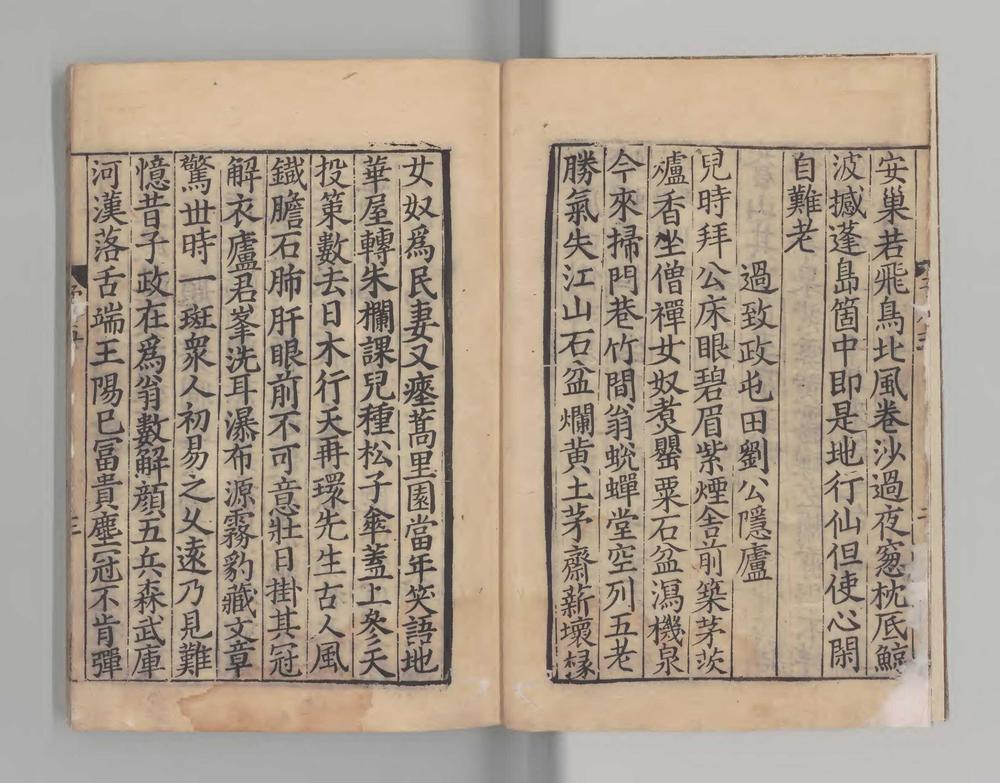 安巢若飛鳥北風卷沙過夜窻枕底鯨
波撼蓬島箇中即是地行仙但使心閑
自難老
過致政屯田劉公隱廬
兒時拜公床眼碧眉紫煙舎前築茅茨
爐香坐僧禪女奴煑罌粟石盆瀉機泉
今來掃門巷竹間翁蛻蟬堂空列五老
勝氣失江山石盆爛黄土茅齋薪壞椽
女奴爲民妻又瘞蒿里園當年笑語地
華屋轉朱欄課兒種松子傘蓋上參天
投策數去日木行天再環先生古人風
鐵膽石肺肝眼前不可意壯日掛其冠
解衣廬君峯洗耳瀑布源霧豹藏文章
驚世時一斑衆人初易之久遠乃見難
憶昔子政在爲翁數解顔五兵森武庫
河漢落舌端王陽已冨貴塵冠不肯彈